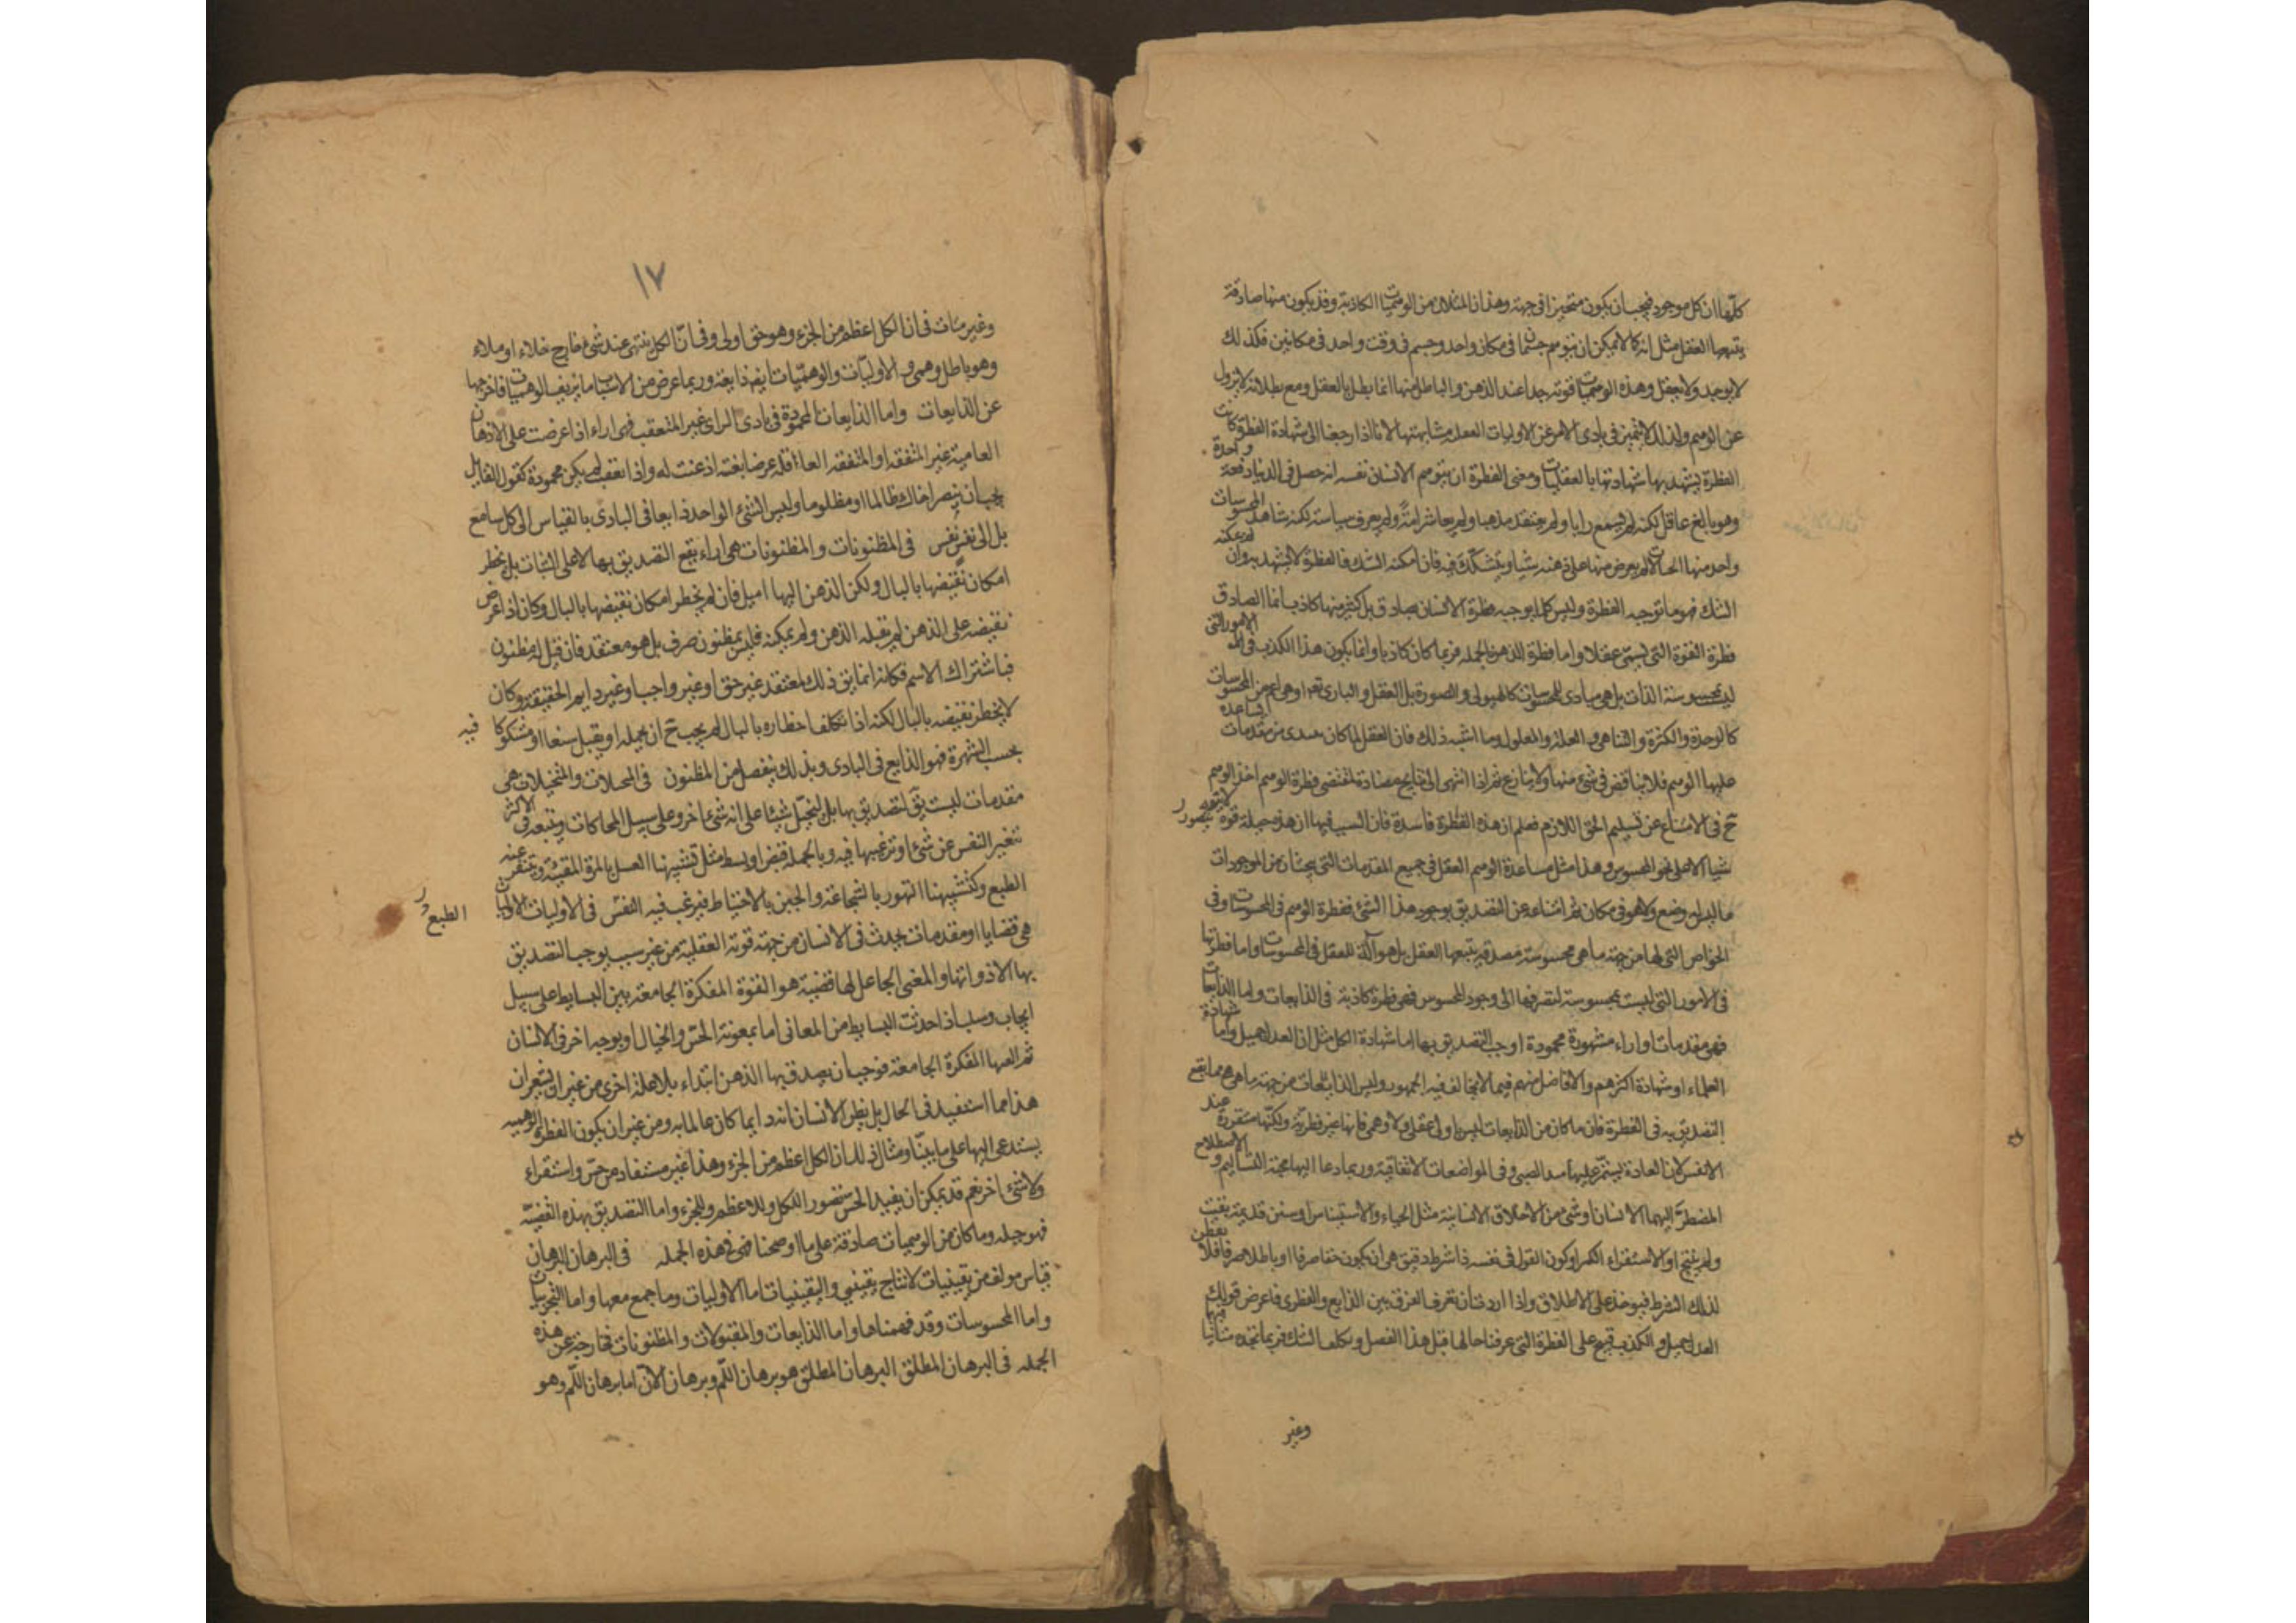 كلها ان كل موجود فيجب ان يكون متحيزا في جهة وهذان المثالان من الوهميات الكاذبة وقد يكون منها صادقة
يتبعها العقل مثل انه كما لا يمكن ان يتوهم جسمان في مكان واحد وجسم في وقت واحد في مكانين فكذلك
لا يوجد ولا يعقل وهذه الوهميات قوية جدا عند الذهن والباطل منها انما يبطل بالعقل ومع بطلانه لا يزول
عن الوهم ولذلك لا يتميز في بادى الامر عن الاوليات العقلية ومشابهتها لانا اذا رجعنا الى شهادة الفطرة كانت
الفطرة يشهد بها شهادتها بالعقليات ومعنى الفطرة ان يتوهم الانسان نفسه انه حصل في الدنيا دفعة واحدة
وهو بالغ عاقل لكنه لم يسمع رايا ولم يعتقد مذهبا ولم يعاشر امة ولم يعرف سياسة لكنه شاهد المحسوسات
واخذ منها الحالات ثم يعرض منها على ذهنه شيا ويتشكك فيه فان امكنه الشك فالفطرة لا يشهد به وان لم يمكنه
الشك فهو ما توجبه الفطرة وليس كل ما يوجبه فطرة الانسان بصادق بل كثير منها كاذب انما الصادق
فطرة القوة التى تسمى عقلا واما فطرة الذهن بالجملة فربما كان كاذبا وانما يكون هذا الكذب في الامور التى
ليست بمحسوسة الذات بل هى مبادى للمحسوسات كالهيولى والصورة بل العقل والبارى تعالى او هى اعم من المحسوسات
كالوحدة والكثرة والتناهى والعلة والمعلول وما اشبه ذلك فان العقل لما كان يبتدى من مقدمات يساعده
عليها الوهم فلا يناقض في شئ منها ولا ينازع ثم اذا انتهى الى نتايج مضادة لمقتضى فطرة الوهم اخذ الوهم
ح في الامتناع عن تسليم الحق اللازم فعلم ان هذه الفطرة فاسدة وان السبب فيها ان هذه جبلة قوة لا يتصور
شيا الا على نحو المحسوس وهذا مثل مساعدة الوهم العقل في جميع المقدمات التى ينتج ان من الموجودات
ما ليس له وضع ولا هو في مكان ثم امتناعه عن التصديق بوجود هذا الشئ ففطرة الوهم في المحسوسات وفي
الخواص التى لها من جهة ما هى محسوسة مصدقة يتبعها العقل بل هو آلة للعقل في المحسوسات واما فطرتها
في الامور التى ليست بمحسوسة لتصرفها الى وجود المحسوس فهى فطرة كاذبة في الذايعات واما الذايعات
فهى مقدمات او اراء مشهورة محمودة اوجب التصديق بها اما شهادة الكل مثل ان العدل جميل واما شهادة
العلماء او شهادة اكثرهم والافاضل منهم فيما لا يخالف فيه الجمهور وليس الذايعات من جهة ما هى هى مما يقع
التصديق به في الفطرة فان ما كان من الذايعات ليس باولى عقلى ولا وهمى فانها غير فطرية ولكنها متقررة عند
الانفس لان العادة يستمر عليها منذ الصبى وفي المواضعات الاتفاقية وربما دعا اليها محبة التسالم والاصطلاح
المضطر اليهما الانسان او شئ من الاخلاق الانسانية مثل الحياء والاستيناس او سنن قديمة بقيت
ولم ينسخ او الاستقراء الكثير او كون القول في نفسه ذا شرط دقيق بين ان يكون حقا صرفا او باطلا صرفا فلا يفطن
لذلك الشرط فيوخذ على الاطلاق واذا اردت ان تعرف الفرق بين الذايع والفطرى فاعرض قولك
العدل جميل والكذب قبيح على الفطرة التى عرفنا حالها قبل هذا الفصل وتكلف الشك فيهما تجد الشك متاتيا
وغير
١٧
وغير متات في ان الكل اعظم من الجزء وهو حق اولى وفي ان الكل ينتهى عند شئ خارج خلاء او ملاء
وهو باطل وهمى والاوليات والوهميات ايضا ذايعة وربما عرض من الاسباب ما يزيف الوهميات فاخرجها
عن الذايعات واما الذايعات المحمودة في بادى الراى غير المتعقب فهى اراء اذا عرضت على الاذهان
العامية غير المتفقهة او المتفقهة الغافلة عرضا بغتة اذعنت له واذا تعقبت لم يكن محمودة كقول القايل
يجب ان ينصر اخاك ظالما او مظلوما وليس الشئ الواحد ذايعا في البادى بالقياس الى كل سامع
بل الى نفس نفس في المظنونات والمظنونات هى اراء يقع التصديق بها لا على الثبات بل يخطر
امكان نقيضها بالبال ولكن الذهن اليها اميل فان لم يخطر امكان نقيضها بالبال وكان اذا عرض
نقيضه على الذهن لم يقبله الذهن ولم يمكنه فليس بمظنون صرف بل هو معتقد فان قيل له مظنون
فباشتراك الاسم فكانه انما يق ذلك لمعتقد غير حق او غير واجب او غير دايم الحقيقة وكان
لا يخطر نقيضه بالبال لكنه اذا تكلف اخطاره بالبال لم يجب ح ان يحيله او يقبل شنعا او مشكوكا فيه
بحسب الشهرة فهو الذايع في البادى وبذلك ينفصل من المظنون في المخيلات والمتخيلات هى
مقدمات ليست يق لتصديق بها بل لتخيل شيئا على انه شئ اخر وعلى سبيل المحاكات ويتبعه في الاكثر
تنفير النفس عن شئ او ترغيبها فيه وبالجملة قبض او بسط مثل تشبيهنا العسل بالمرة المقيئة وينفر عنه
الطبع وكتشبيهنا التهور بالشجاعة والجبن بالاحتياط فيرغب فيه النفس في الاوليات الاوليات
الطبع
هى قضايا او مقدمات يحدث في الانسان من جهة قوته العقلية من غير سبب يوجب التصديق
بها الا ذواتها والمعنى الجاعل لها قضية هو القوة المفكرة الجامعة بين البسايط على سبيل
ايجاب وسلب اذا حدثت البسايط من المعانى اما بمعونة الحس والخيال او بوجه اخر في الانسان
ثم الفها الفكرة الجامعة فوجب ان يصدق بها الذهن ابتداء بلا علة اخرى من غير ان يشعر ان
هذا مما استفيد في الحال بل يظن الانسان انه دايما كان عالما به ومن غير ان يكون الفطرة الوهمية
يستدعى اليها على ما بينا ومثال ذلك ان الكل اعظم من الجزء وهذا غير مستفاد من حس واستقراء
ولا شئ اخر نعم قد يمكن ان يفيد الحس تصور الكل وللاعظم وللجزء واما التصديق بهذه القضية
فهو جبلة وما كان من الوهميات صادقة على ما اوضحنا فهى في هذه الجملة في البرهان البرهان
قياس مولف من يقينيات لانتاج يقينى واليقينيات اما الاوليات وما جمع معها واما التجربيات
واما المحسوسات وقد فهمناها واما الذايعات والمقبولات والمظنونات فخارجة عن هذه
الجملة في البرهان المطلق البرهان المطلق هو برهان اللم وبرهان الان اما برهان اللم وهو